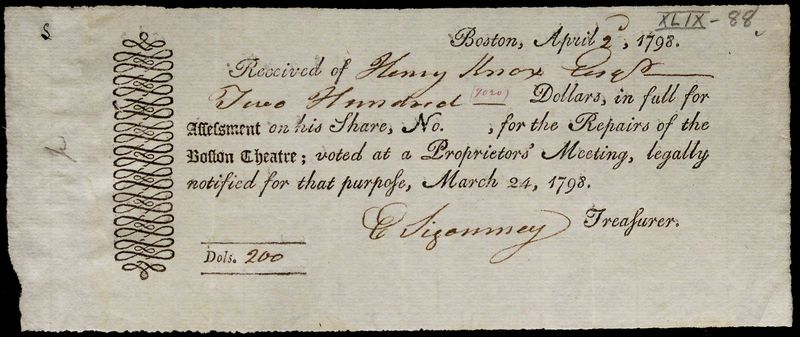 XLIX-88
Boston, April 2d, 1798.
Received of Henry Knox Esqr
Two Hundred (7020) Dollars, in full for
Aſſeſsment on his Share, No. , for the Repairs of the
Boſton Theatre; voted at a Proprietors' Meeting, legally
notified for that purpose, March 24, 1798.
C Sigourney Treaſurer.
Dols. 200